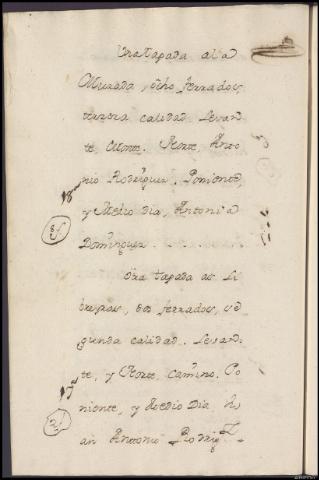 Una tapada al a
Murada, ocho ferrados,
terzera calidad. Levan
te, Monte. Norte, Anto
nio Rodriguez. Poniente,
y Medio dia, Antonia
Dominguez.
Otra tapada as
dos ferrados, se
gunda calidad. Levan
te, y Norte, Camino. Po
niente, y Medio Dia, Ju
an Antonio Rodrig.z